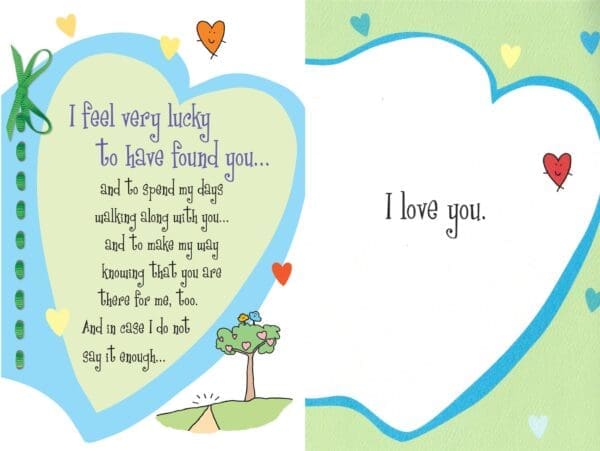 I feel very lucky
to have found you...
and to spend my days
walking along with you...
and to make my way
knowing that you are
there for me, too.
And in case I do not
say it enough...
I love you.